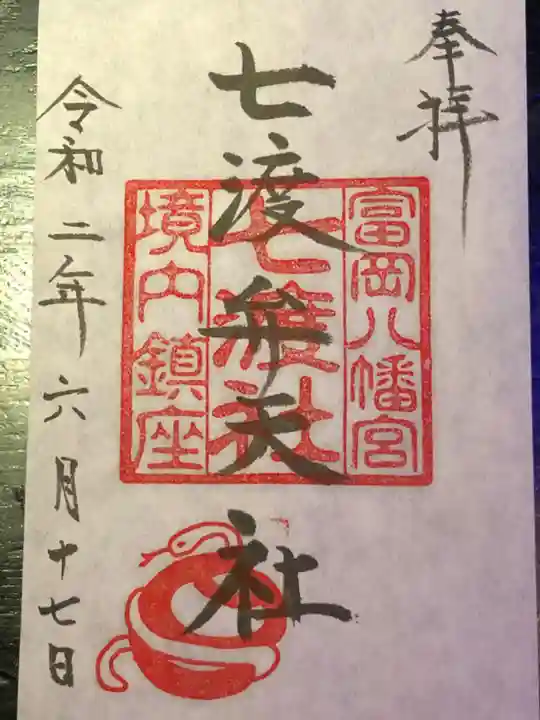 奉拝
富岡八幡宮
七渡社
境内鎮座
七渡弁天社
令和二年六月十七日